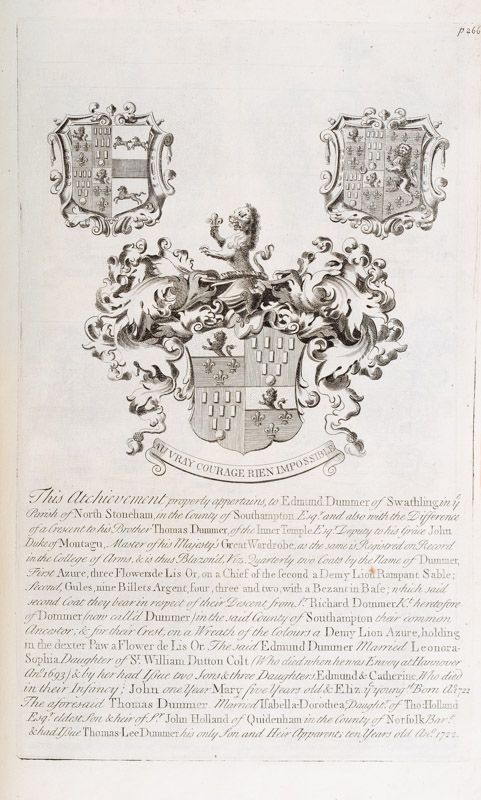 p 266
AU VRAY COURAGE RIEN IMPOSSIBLE
This Atchievement, properly appertains, to Edmund Dummer of Swathling in yͤ
Parish of North Stoneham, in the County of Southampton Esqʳ. and also with the Difference
of a Crescent to his Brother Thomas Dummer, of the Inner Temple Esqʳ. Deputy to his Grace John
Duke of Montagu, Master of his Majesty's Great Wardrobe, as the same is Registred on Record
in the College of Arms, & is thus Blazon'd, Viz. Quarterly two Coats by the Name of Dummer,
First Azure, three Flowers de Lis Or, on a Chief of the second a Demy Lion Rampant Sable;
Second, Gules, nine Billets Argent, four, three and two, with a Bezant in Base; which said
second Coat they bear in respect of their Descent from Sʳ. Richard Dommer Kᵗ. heretofore
of Dommer (now call'd Dummer) in the said County of Southampton their common
Ancestor; & for their Crest, on a Wreath of the Colours a Demy Lion Azure, holding
in the dexter Paw a Flower de Lis Or. The said Edmund Dummer Married Leonora-
Sophia Daughter of Sʳ. William Dutton Colt (Who died when he was Envoy at Hannover
Anͦ. 1693) & by her had Issue two Sons & three Daughters; Edmund & Catherine, Who died
in their Infancy; John one Year Mary five Years old & Eliz. yͤ youngˢᵗ Born Aͦ. 1722
The aforesaid Thomas Dummer Married Isabella-Dorothea, Daughᵗ. of Tho: Holland
Esqʳ. eldest Son & heir of Sʳ. John Holland of Quidenham in the County of Norfolk Barᵗ.
& had Issue Thomas-Lee Dummer his only Son and Heir Apparent; ten Years old Anͦ. 1722.